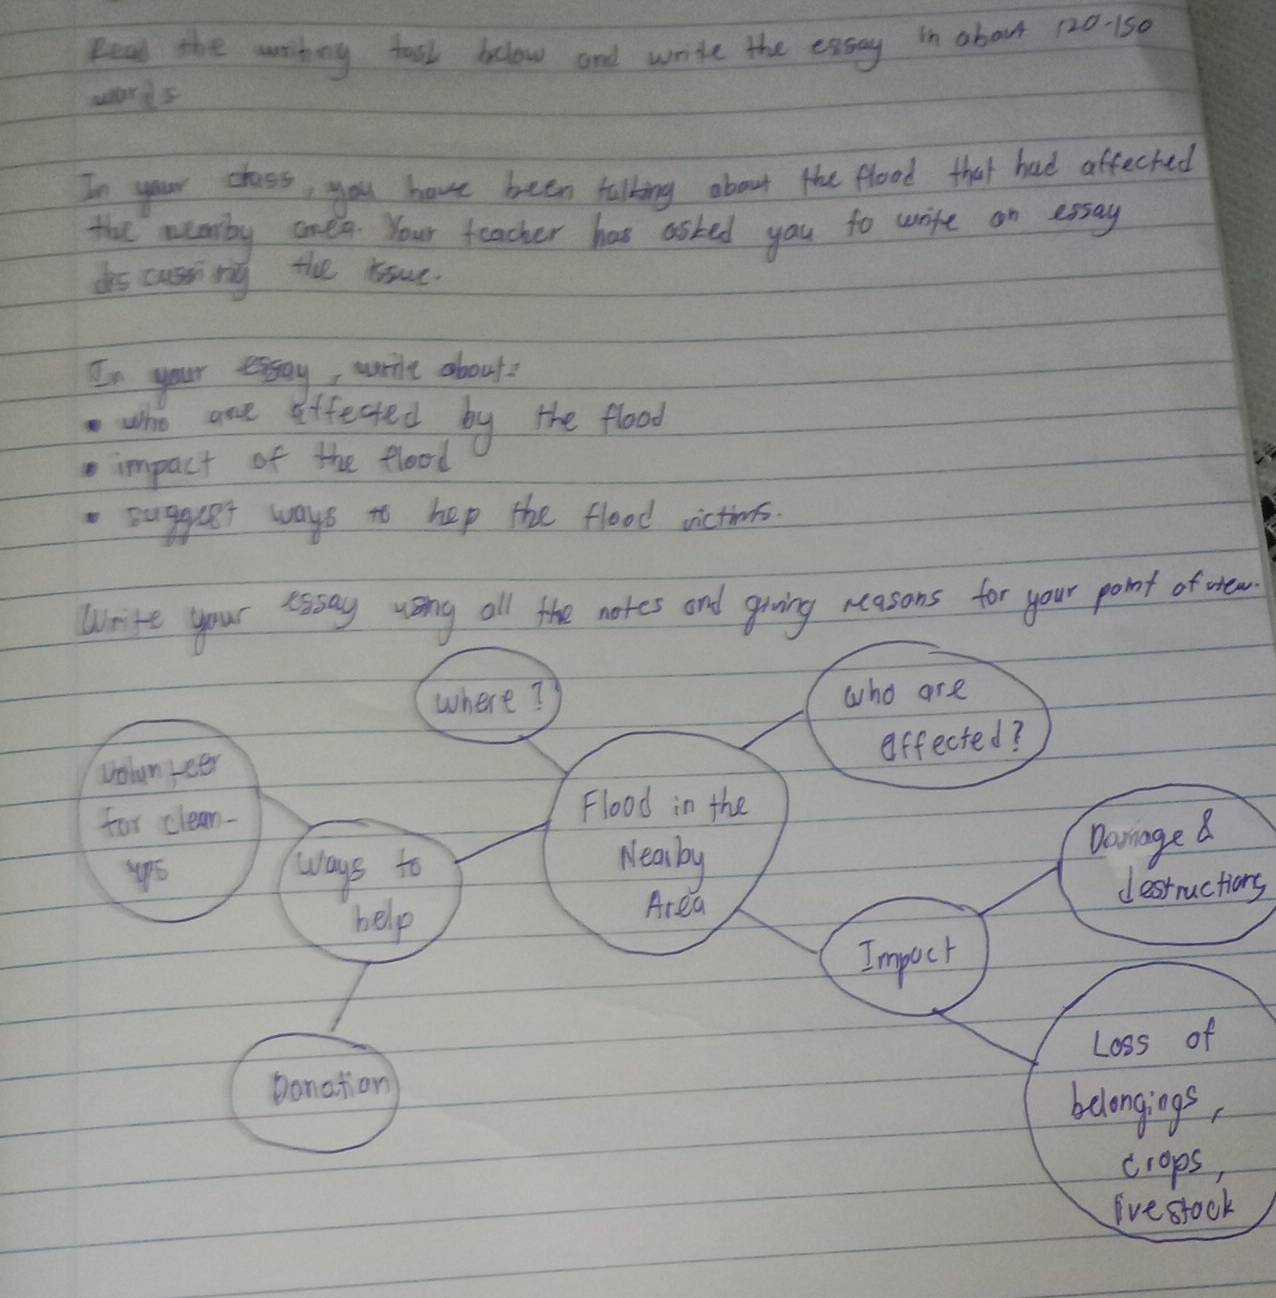 Read the writing task below and write the essay in about 120-150
words
In your class, you have been talking about the flood that had affected
the nearby area. Your teacher has asked you to write an essay
discussing the issue.
In your essay, write about:
• who are affected by the flood
• impact of the flood
• suggest ways to hep the flood victims.
Write your essay using all the notes and giving reasons for your point of view.
Where?
Who are
affected?
Volunteer
for clean-
ups
Ways to
help
Flood in the
Nearby
Area
Damage &
destructions
Impact
Donation
Loss of
belongings,
crops,
livestock